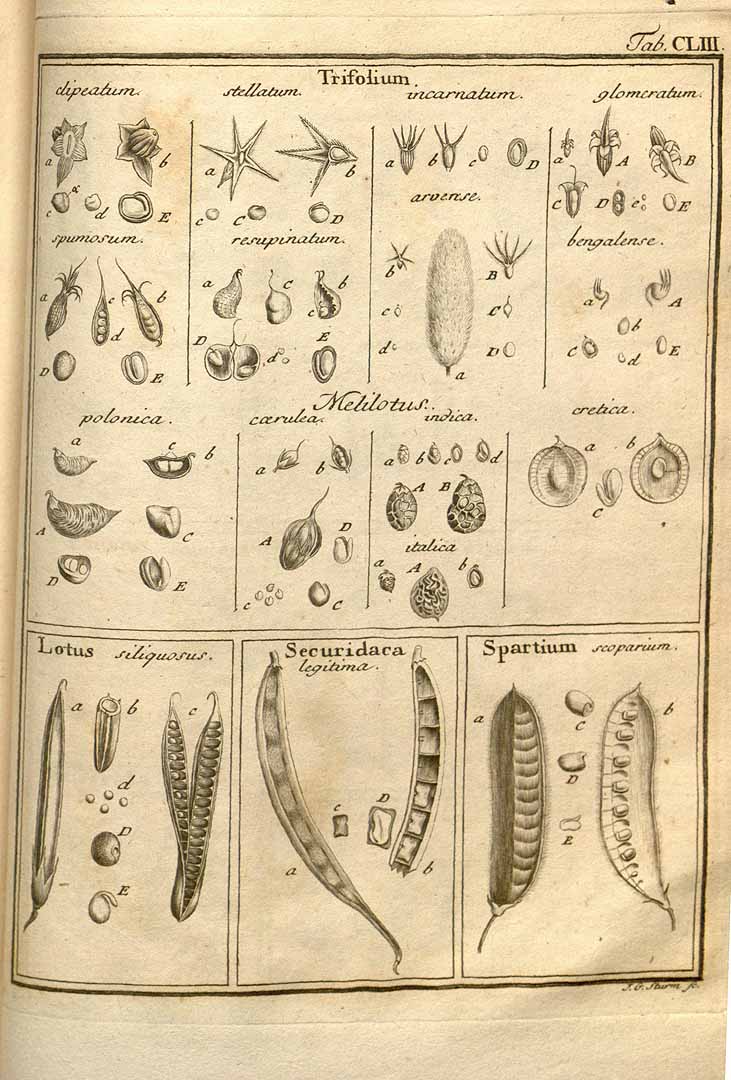 Tab. CLIII.
Trifolium
clipeatum. stellatum. incarnatum. glomeratum.
a b a b a b c D a A B
c d E c C D C D e E
arvense.
spumosum. resupinatum. bengalense.
a c b a C b b B a A
d c c C b
D E D d E d D C d E
a
Melilotus.
polonica. cærulea. indica. cretica.
a c b a b a b c d a b
A C A D A B C
italica
D E c C a A b
Lotus siliquosus. Securidaca Spartium scoparium.
legitima.
a b c a c D b a C b
d D
D E
E
J. G. Sturm sc.